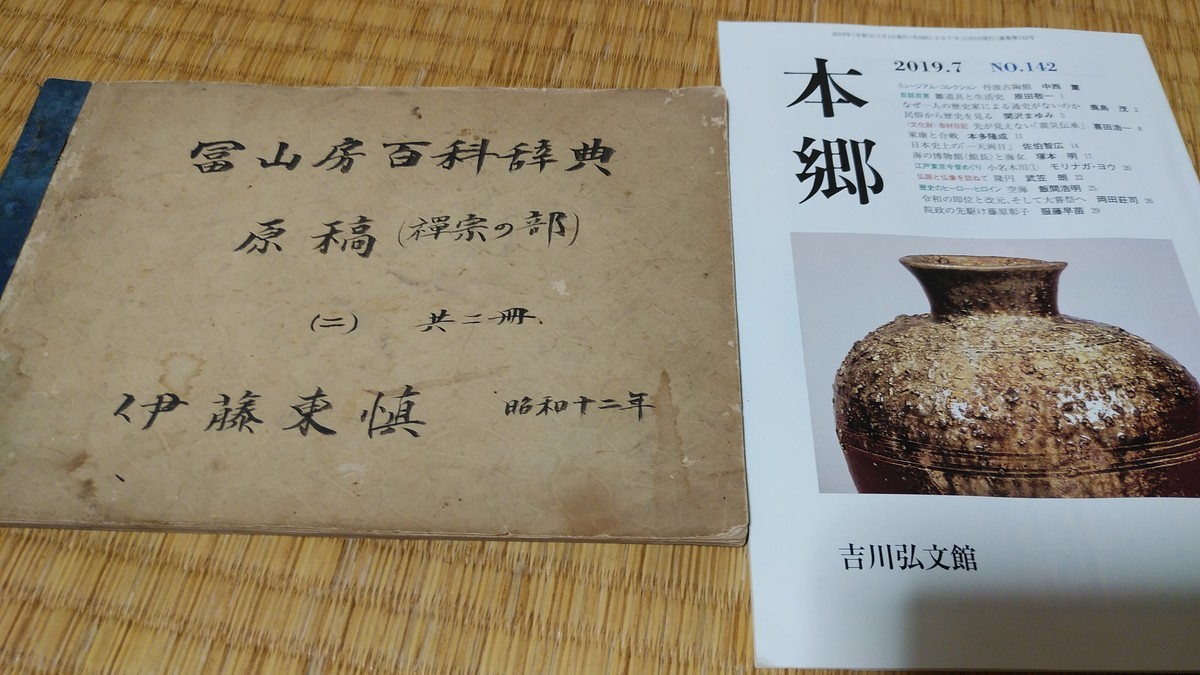 冨山房百科辞典
原稿(禪宗の部)
(二) 共二冊、
伊藤東慎 昭和十二年
本郷
2019.7 NO.142
ミュージアム・コレクション 丹波古陶館 中西 薫
雛道具と生活史 原田敬一 1
なぜ一人の歴史家による通史がないのか 鹿島 茂 2
民俗から歴史を見る 関沢まゆみ 5
〈文化財〉取材日記 先が見えない「震災伝承」 喜田浩一 8
家康と合戦 本多隆成 11
日本史上の「一天両日」 佐伯智広 14
海の博物館〈館長〉と海女 塚本 明 17
江戸東京今昔めぐり 小名木川① モリナガ・ヨウ 20
仏師と仏像を訪ねて 隆円 武笠 朗 22
歴史のヒーロー・ヒロイン 空海 飯間浩明 25
令和の即位と改元、そして大嘗祭へ 岡田荘司 26
院政の先駆け藤原彰子 服藤早苗 29
吉川弘文館